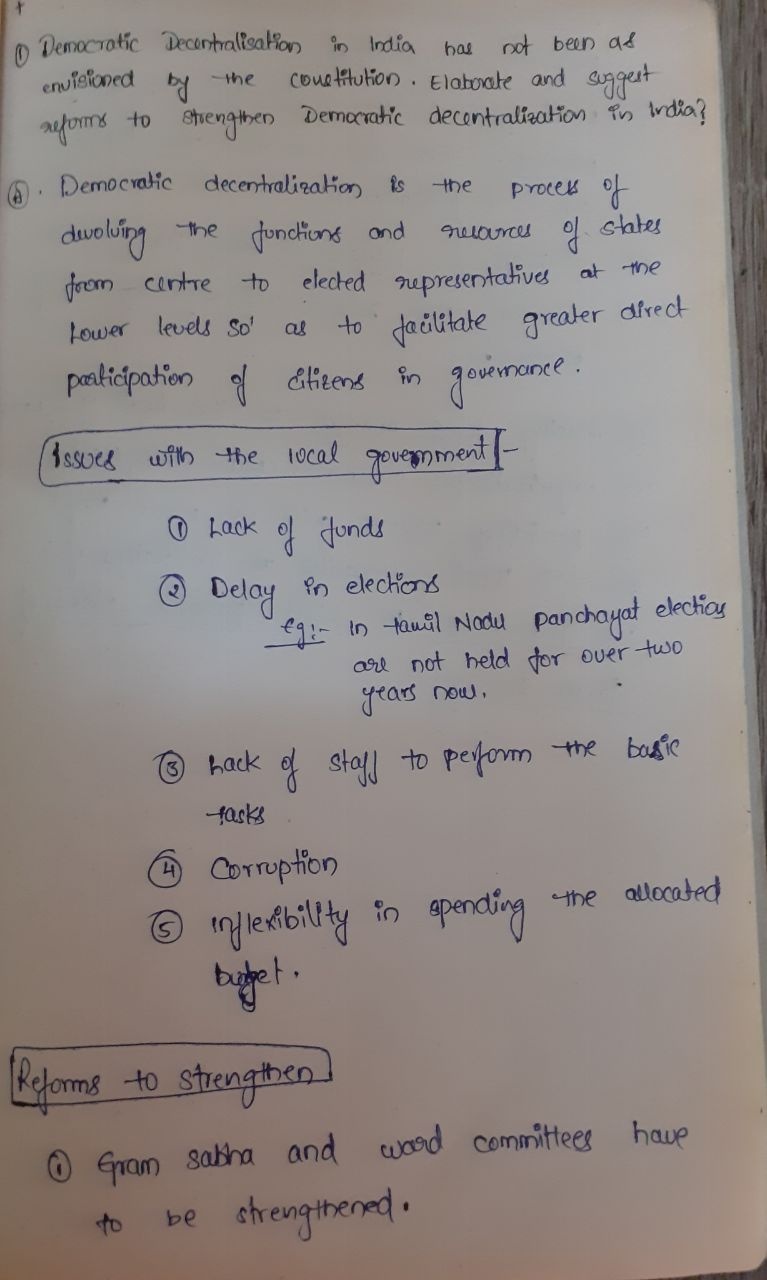 +
① Democratic Decentralisation in India has not been as
envisioned by the constitution. Elaborate and suggest
reforms to strengthen Democratic decentralization in India?
Ⓐ. Democratic decentralization is the process of
devolving the functions and resources of states
from centre to elected representatives at the
Lower levels so' as to facilitate greater direct
participation of citizens in governance.
Issues with the local government :-
① Lack of funds
② Delay in elections
eg:- In tamil Nadu panchayat elections
are not held for over two
years now.
③ Lack of staff to perform the basic
tasks
④ Corruption
⑤ inflexibility in spending the allocated
budget.
Reforms to strengthen
① Gram sabha and ward committees have
to be strengthened.